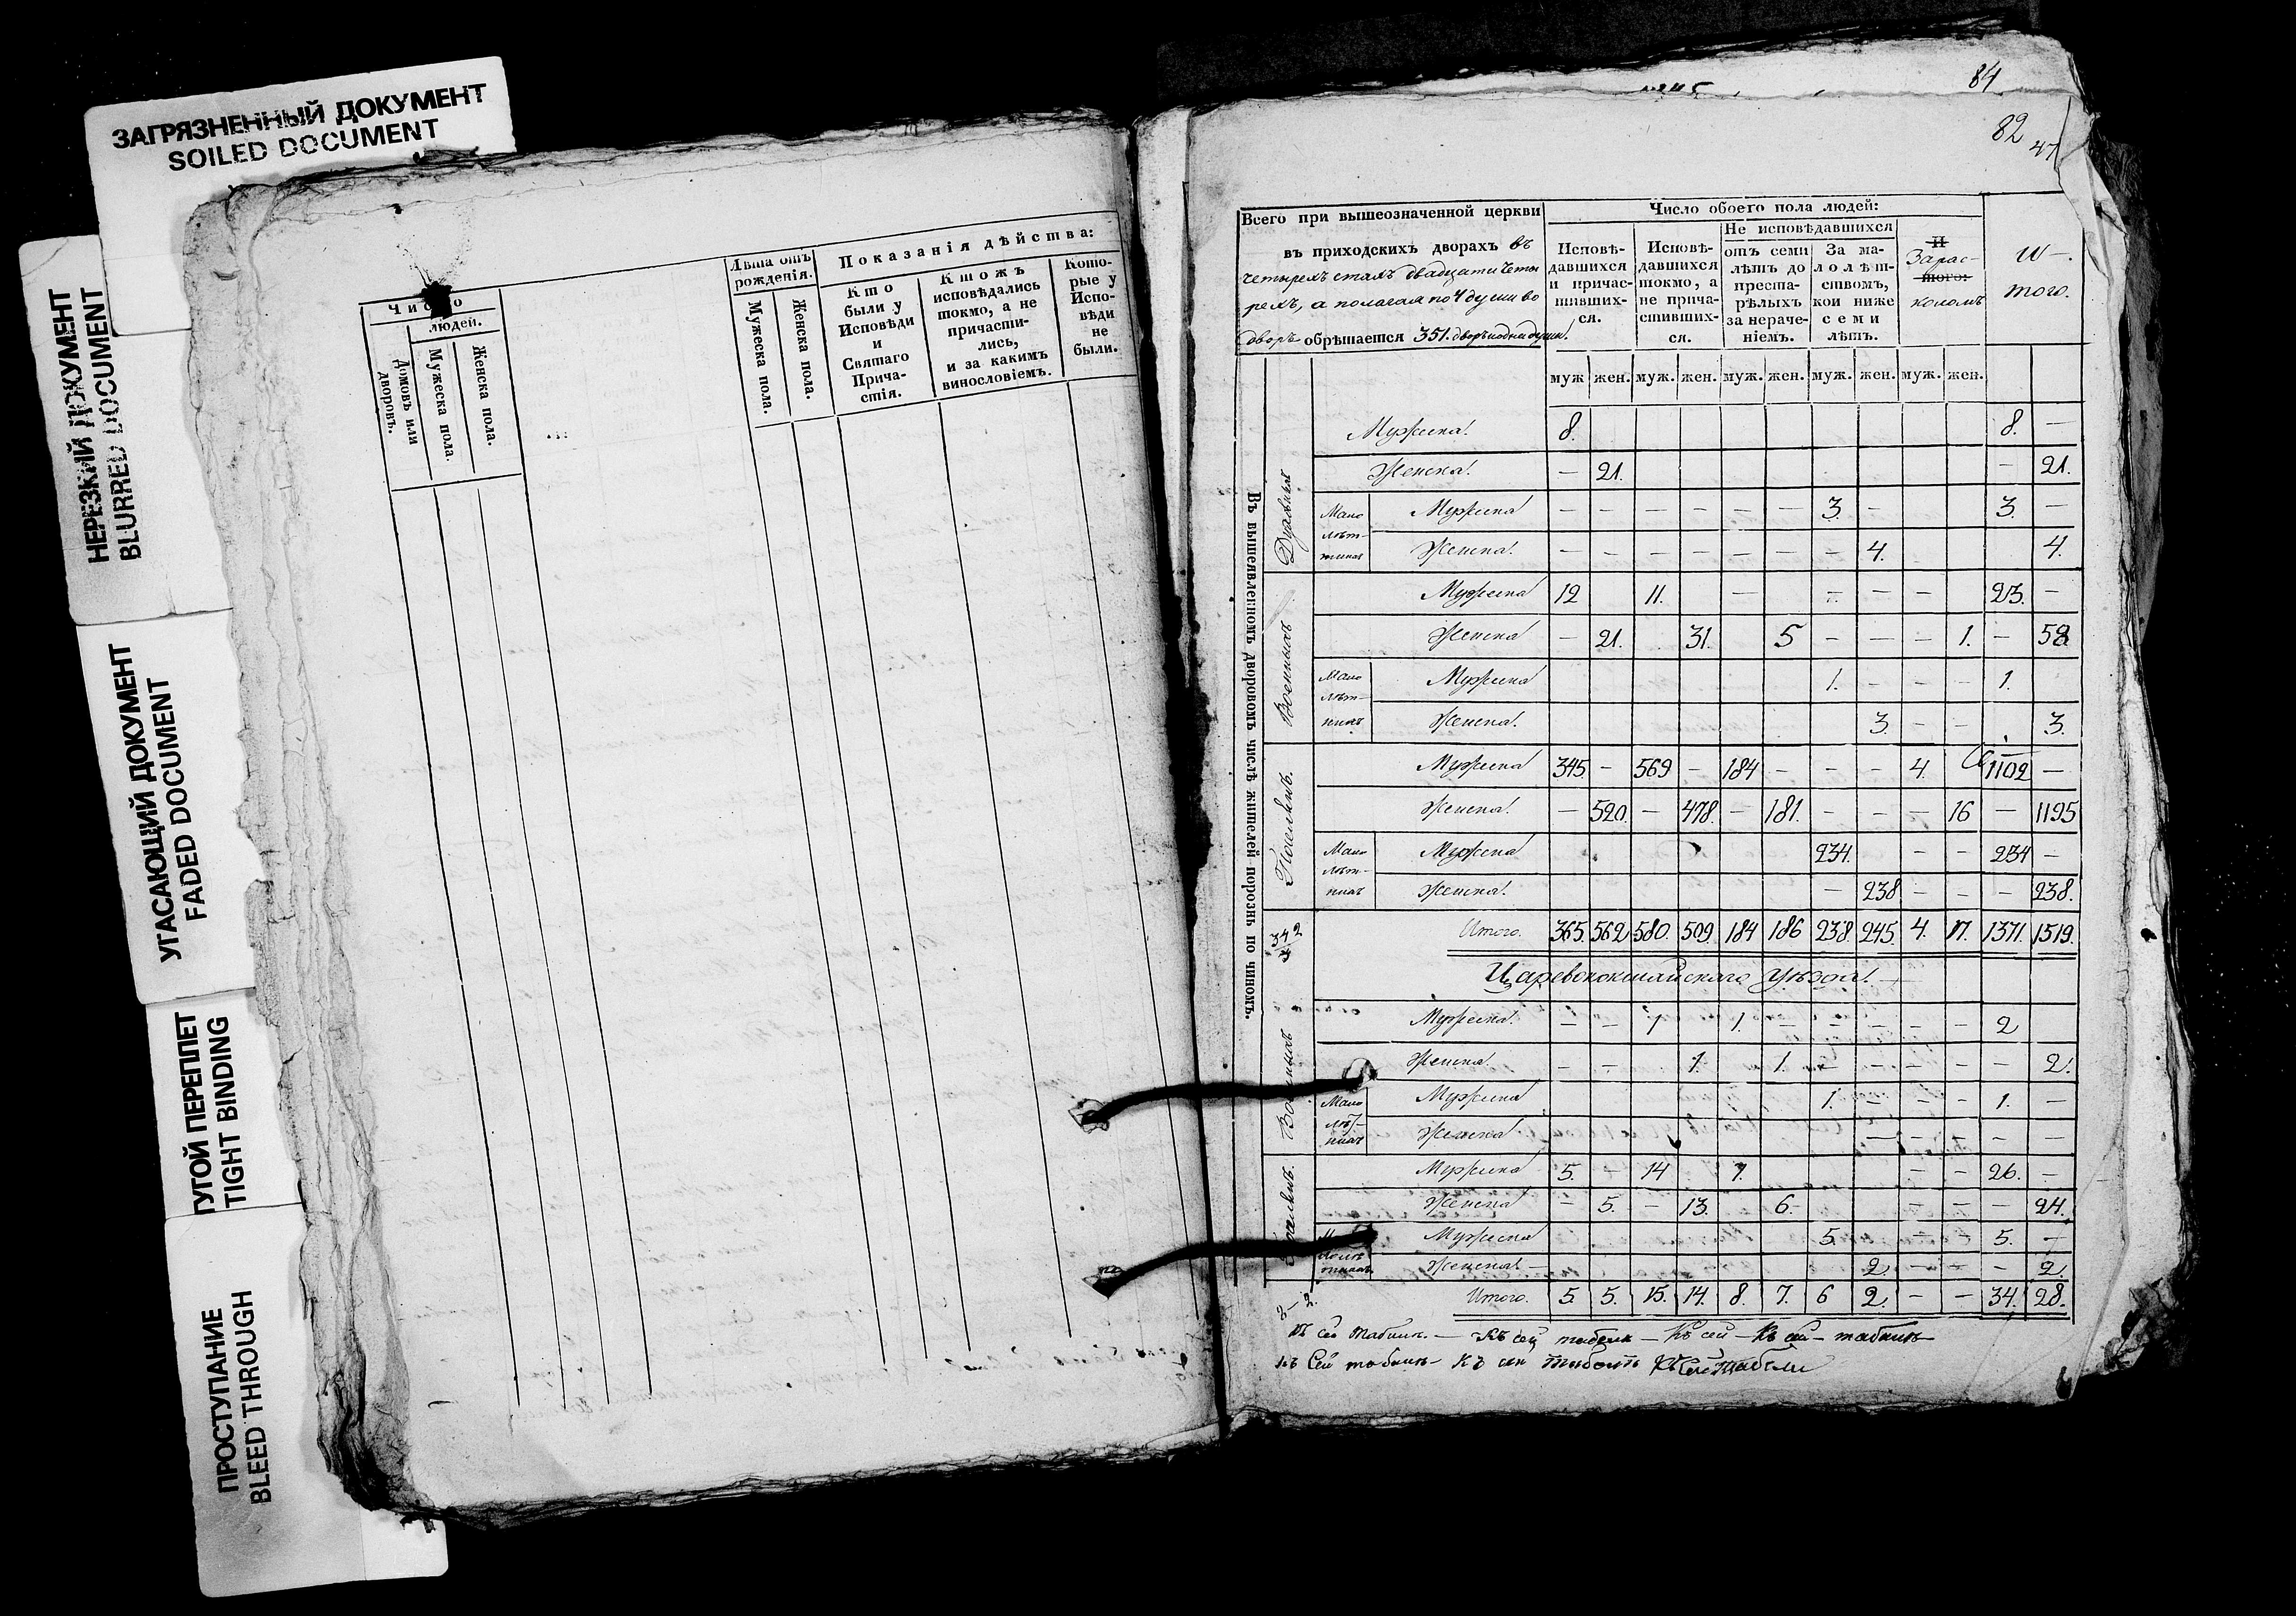 ЗАГРЯЗНЕННЫЙ ДОКУМЕНТ
SOILED DOCUMENT
НЕРЕЗКИЙ ДОКУМЕНТ
BLURRED DOCUMENT
УГАСАЮЩИЙ ДОКУМЕНТ
FADED DOCUMENT
ТУГОЙ ПЕРЕПЛЕТ
TIGHT BINDING
ПРОСТУПАНИЕ
BLEED THROUGH
Число
людей.
Домовъ или дворовъ.
Мужеска пола.
Женска пола.
Лѣта отъ рожденія.
Мужеска пола.
Женска пола.
Показанія дѣйства:
Кто были у Исповѣди и Святаго Причастія.
Ктожъ исповѣдались токмо, а не причастились, и за какимъ винословіемъ.
Которые у Исповѣди не были.
84
82
47
Всего при вышеозначенной церкви
въ приходскихъ дворахъ въ
четырехъ стахъ двадцати четы
рехъ, а полагая по 4 души во
дворъ обрѣтается 351. дворъ
Число обоего пола людей:
Исповѣдавшихся и причастившихся.
Исповѣдавшихся токмо, а не причастившихся.
Не исповѣдавшихся
отъ семи лѣтъ до престарѣлыхъ за нерачениемъ.
За малолѣтствомъ, кои ниже семи лѣтъ.
И
Зарас-
того:
коломъ
И-
того.
муж. жен. муж. жен. муж. жен. муж. жен. муж. жен.
Въ вышеявленномъ дворовомъ числѣ жителей порознь по чиномъ.
Духовныхъ
Мужеска 8. 8. —
Женска — 21. — 21.
Мало лѣтныхъ
Мужеска — — — — — — 3. — 3. —
Женска — — — — — — — 4. 4.
Военныхъ
Мужеска 12 11. — — — — 23. —
Женска — 21. 31. 5 — — — 1. — 58
Мало лѣтныхъ
Мужеска 1. — — — 1.
Женска 3 — — 3.
Поселянъ.
Мужеска 345 — 569 — 184 — — — 4. 1102 —
Женска — 520. — 478. — 181. — — — 16 — 1195
Мало лѣтныхъ
Мужеска 234. — — 234 —
Женска — 238 — — — 238.
342
Итого. 365. 562 580. 509. 184 186 238. 245. 4. 17. 1371. 1519.
Царевококшайскаго Уѣзда.
Военныхъ
Мужеска — — 1 1. — — — — — 2
Женска — — 1. 1. — — — — — 2.
Мало лѣтныхъ
Мужеска 1. — — — 1. —
Женска — — — — —
Поселянъ.
Мужеска 5. — 14 7. — — 26. —
Женска — 5. — 13. 6. — — — 24.
Мужеска 5. — — 5. —
Женска 2. — — — 2.
Итого. 5. 5. 15. 14. 8. 7. 6 2. — — 34. 28.
Къ сей табели